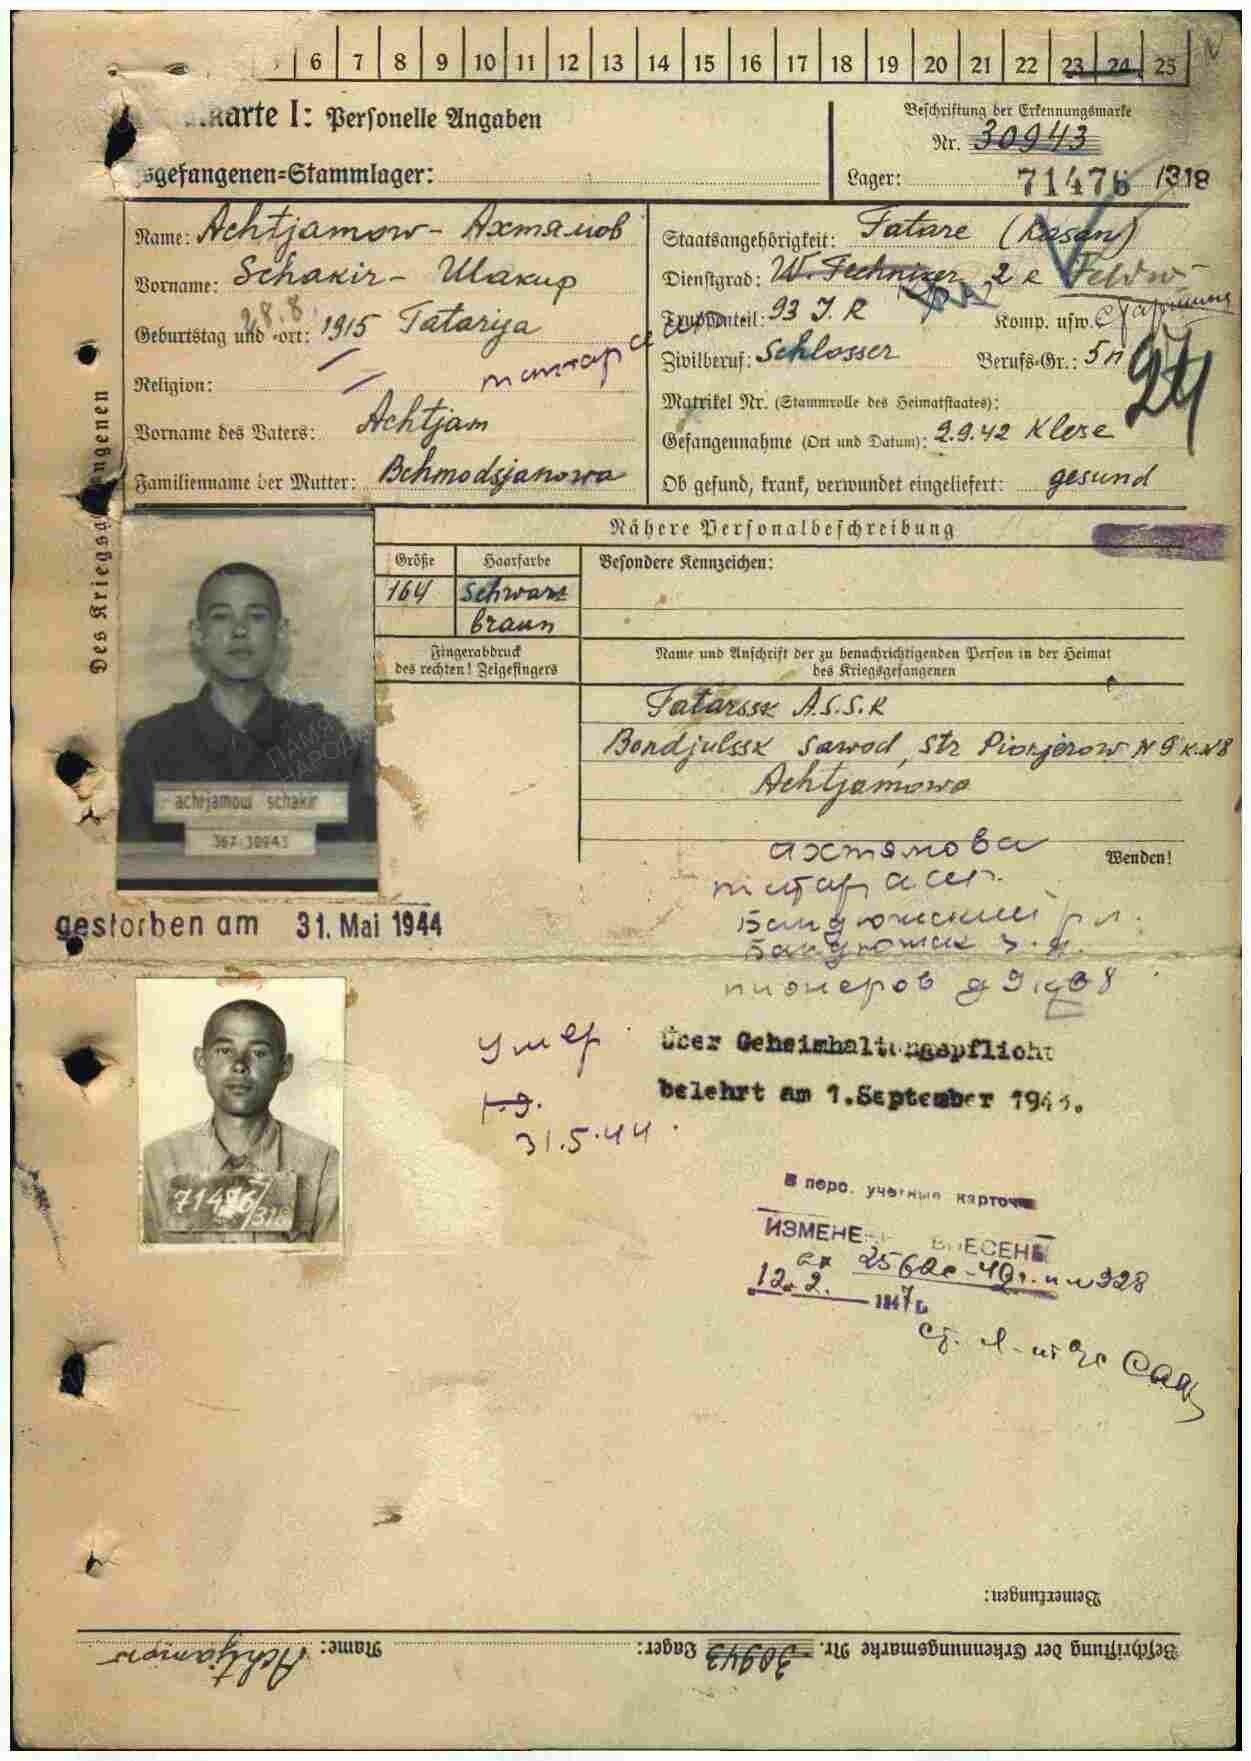 6 7 8 9 10 11 12 13 14 15 16 17 18 19 20 21 22 23 24 25
karte I: Personelle Angaben
Beschriftung der Erkennungsmarke
Nr. 30943
sgefangenen=Stammlager:
Lager: 71476 /318
Name: Achtjamow - Ахтямов
Vorname: Schakir - Шакир
28.8.
Geburtstag und -ort: 1915 Tatariya
татар
Religion:
Vorname des Vaters: Achtjam
Familienname der Mutter: Bchmodsjanowa
Staatsangehörigkeit: Tatare (Kasan)
Dienstgrad: W. Techniker 2 R Feldw
Truppenteil: 93 J.R Komp. usw.
Zivilberuf: Schlosser Berufs-Gr.: 5п
24
Matrikel Nr. (Stammrolle des Heimatstaates):
Gefangennahme (Ort und Datum): 2.9.42 Klese
Ob gesund, krank, verwundet eingeliefert: gesund
Des Kriegsgefangenen
Nähere Personalbeschreibung
Größe Haarfarbe Besondere Kennzeichen:
164 Schwarz
braun
Fingerabdruck
des rechten! Zeigefingers
Name und Anschrift der zu benachrichtigenden Person in der Heimat
des Kriegsgefangenen
Tatarssk A.S.S.R
Bondjulssk Sawod, Str Pionjerow N 9 к.N8
Achtjamowa
ПАМЯТЬ
НАРОДА
achtjamow schakir
367-30943
Wenden!
ахтямова
татар асср.
Бандюжский р.
Бандюжск з.д.
пионеров д 9 кв 8
gestorben am 31. Mai 1944
умер
31.5.44.
über Geheimhaltungspflicht
belehrt am 1. September 1943.
71476/318
В перс. учетные карточки
ИЗМЕНЕНИЯ ВНЕСЕНЫ
12. 2. 1947 г.
Bemerkungen:
Beschriftung der Erkennungsmarke Nr. 30943 Lager: Name: Achtjamow